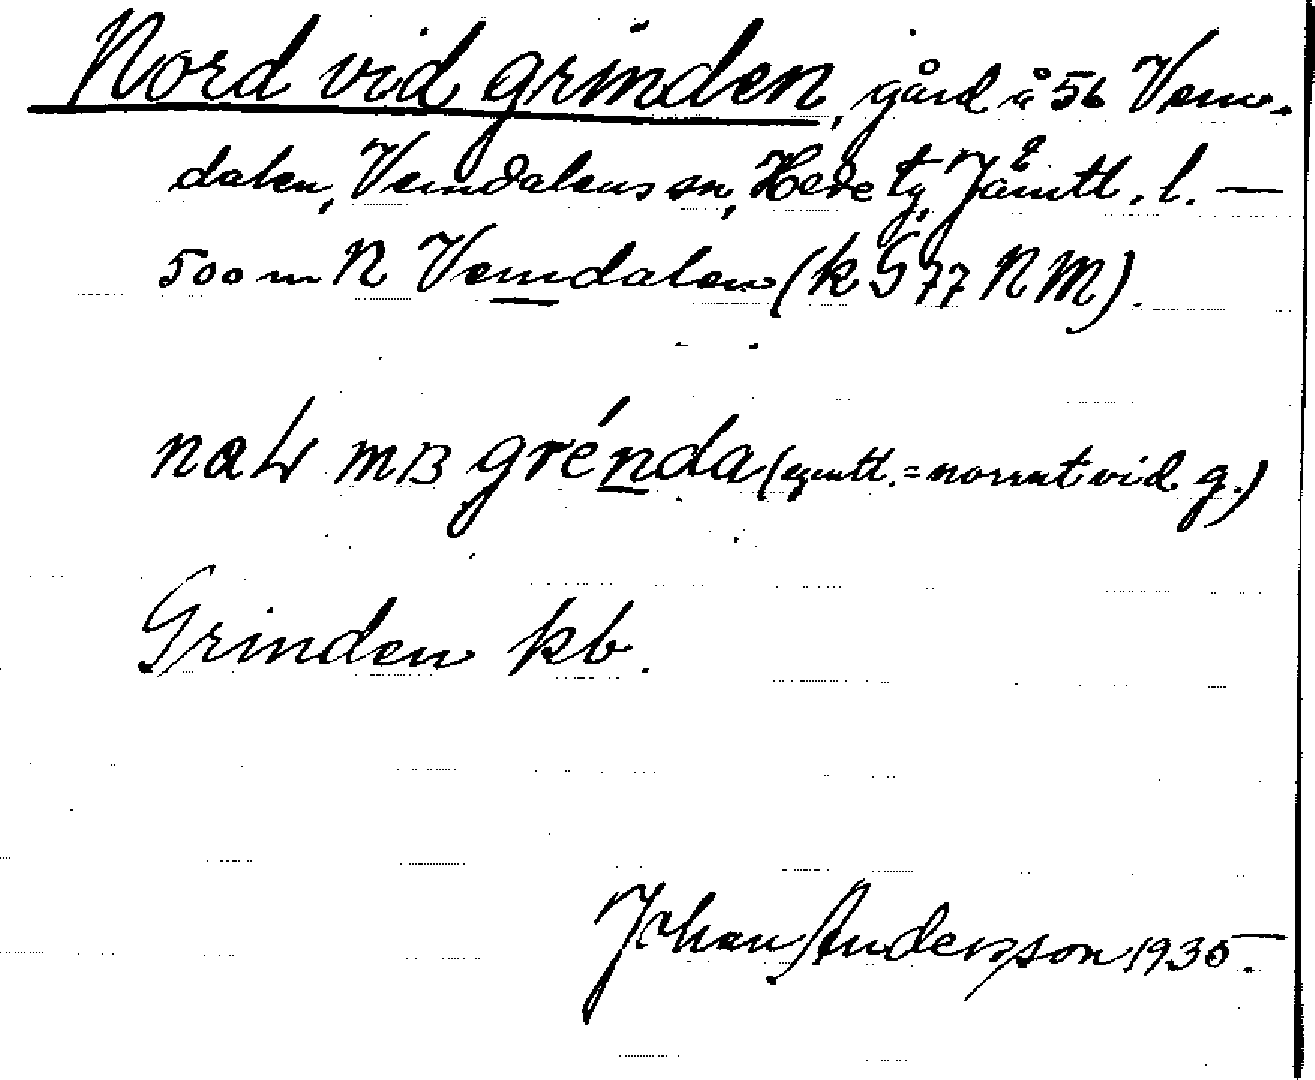 Nord vid grinden, gård å 56 Vem-
dalen, Vemdalens sn, Hede tg, Jämtl. l. —
500 m N Vemdalen (k G 77 N M).
grénda ( = norrut vid g.)
Grinden kb.
Johan Andersson 1935.